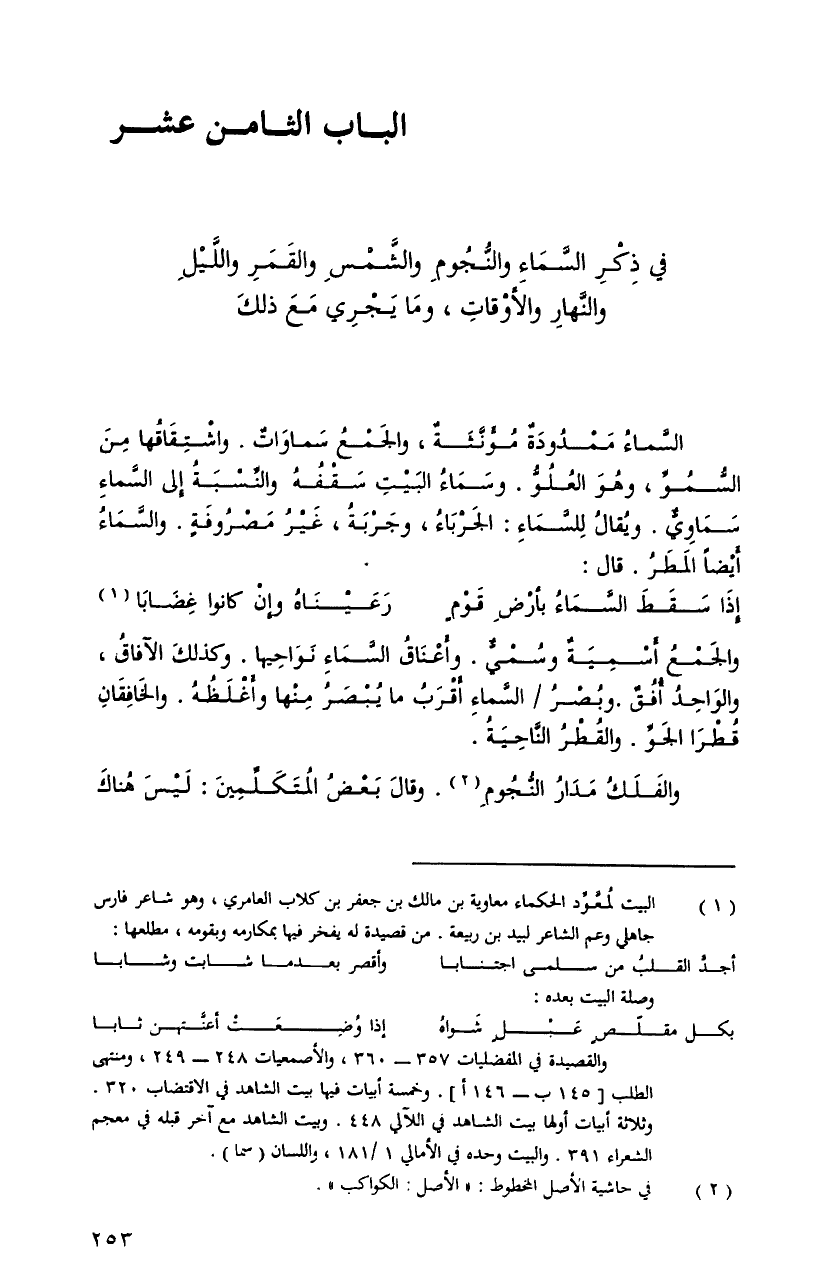 الباب الثامن عشر
في ذِكْرِ السَّمَاءِ والنُّجُومِ والشَّمْسِ والقَمَرِ واللَّيْلِ
والنَّهارِ والأوْقاتِ ، ومَا يَجْرِي مَعَ ذلكَ
السَّماءُ مَمْدُودَةٌ مُؤنَّثَةٌ ، والجَمْعُ سَماوَاتٌ . واشْتِقَاقُها مِنَ
السُّمُوِّ ، وهُوَ العُلُوُّ . وسَمَاءُ البَيْتِ سَقْفُهُ والنِّسْبَةُ إلى السَّماءِ
سَمَاوِيٌّ . ويُقالُ لِلسَّماءِ : الجَرْبَاءُ ، وجَرْبَةُ ، غَيْرُ مَصْرُوفَةٍ . والسَّمَاءُ
أيْضاً المَطَرُ . قال :
إذَا سَقَطَ السَّمَاءُ بأرْضِ قَوْمٍ رَعَيْنَاهُ وإنْ كانوا غِضَابَا (١)
والجَمْعُ أسْمِيَةٌ وسُمْيٌّ . وأعْنَاقُ السَّمَاءِ نَوَاحِيها . وكذلكَ الآفاقُ ،
والوَاحِدُ أُفُقٌ .وبُصْرُ / السَّماءِ أقْرَبُ ما يُبْصَرُ مِنْها وأغْلَظُهُ . والخَافِقَانِ
قُطْرَا الجَوِّ . والقُطْرُ النَّاحِيَةُ .
والفَلَكُ مَدَارُ النُّجُومِ (٢) . وقالَ بَعْضُ المُتَكَلِّمِينَ : لَيْسَ هُناكَ
(١) البيت لمُعَوِّد الحكماء معاوية بن مالك بن جعفر بن كلاب العامري ، وهو شاعر فارس
جاهلي وعم الشاعر لبيد بن ربيعة . من قصيدة له يفخر فيها بمكارمه وبقومه ، مطلعها :
أجدَّ القلبُ من سلمى اجتنابا وأقصر بعدما شابت وشابا
وصلة البيت بعده :
بكل مقلّصٍ عَبْلٍ شَواهُ إذا وُضِعَتْ أعنَّتهن ثابا
والقصيدة في المفضليات ٣٥٧ ــ ٣٦٠ ، والأصمعيات ٢٤٨ ــ ٢٤٩ ، ومنتهى
الطلب [ ١٤٥ ب ــ ١٤٦ أ ] . وخمسة أبيات فيها بيت الشاهد في الاقتضاب ٣٢٠ .
وثلاثة أبيات أولها بيت الشاهد في اللآلي ٤٤٨ . وبيت الشاهد مع آخر قبله في معجم
الشعراء ٣٩١ . والبيت وحده في الأمالي ١ / ١٨١ ، واللسان ( سما ) .
(٢) في حاشية الأصل المخطوط : « الأصل : الكواكب » .
٢٥٣